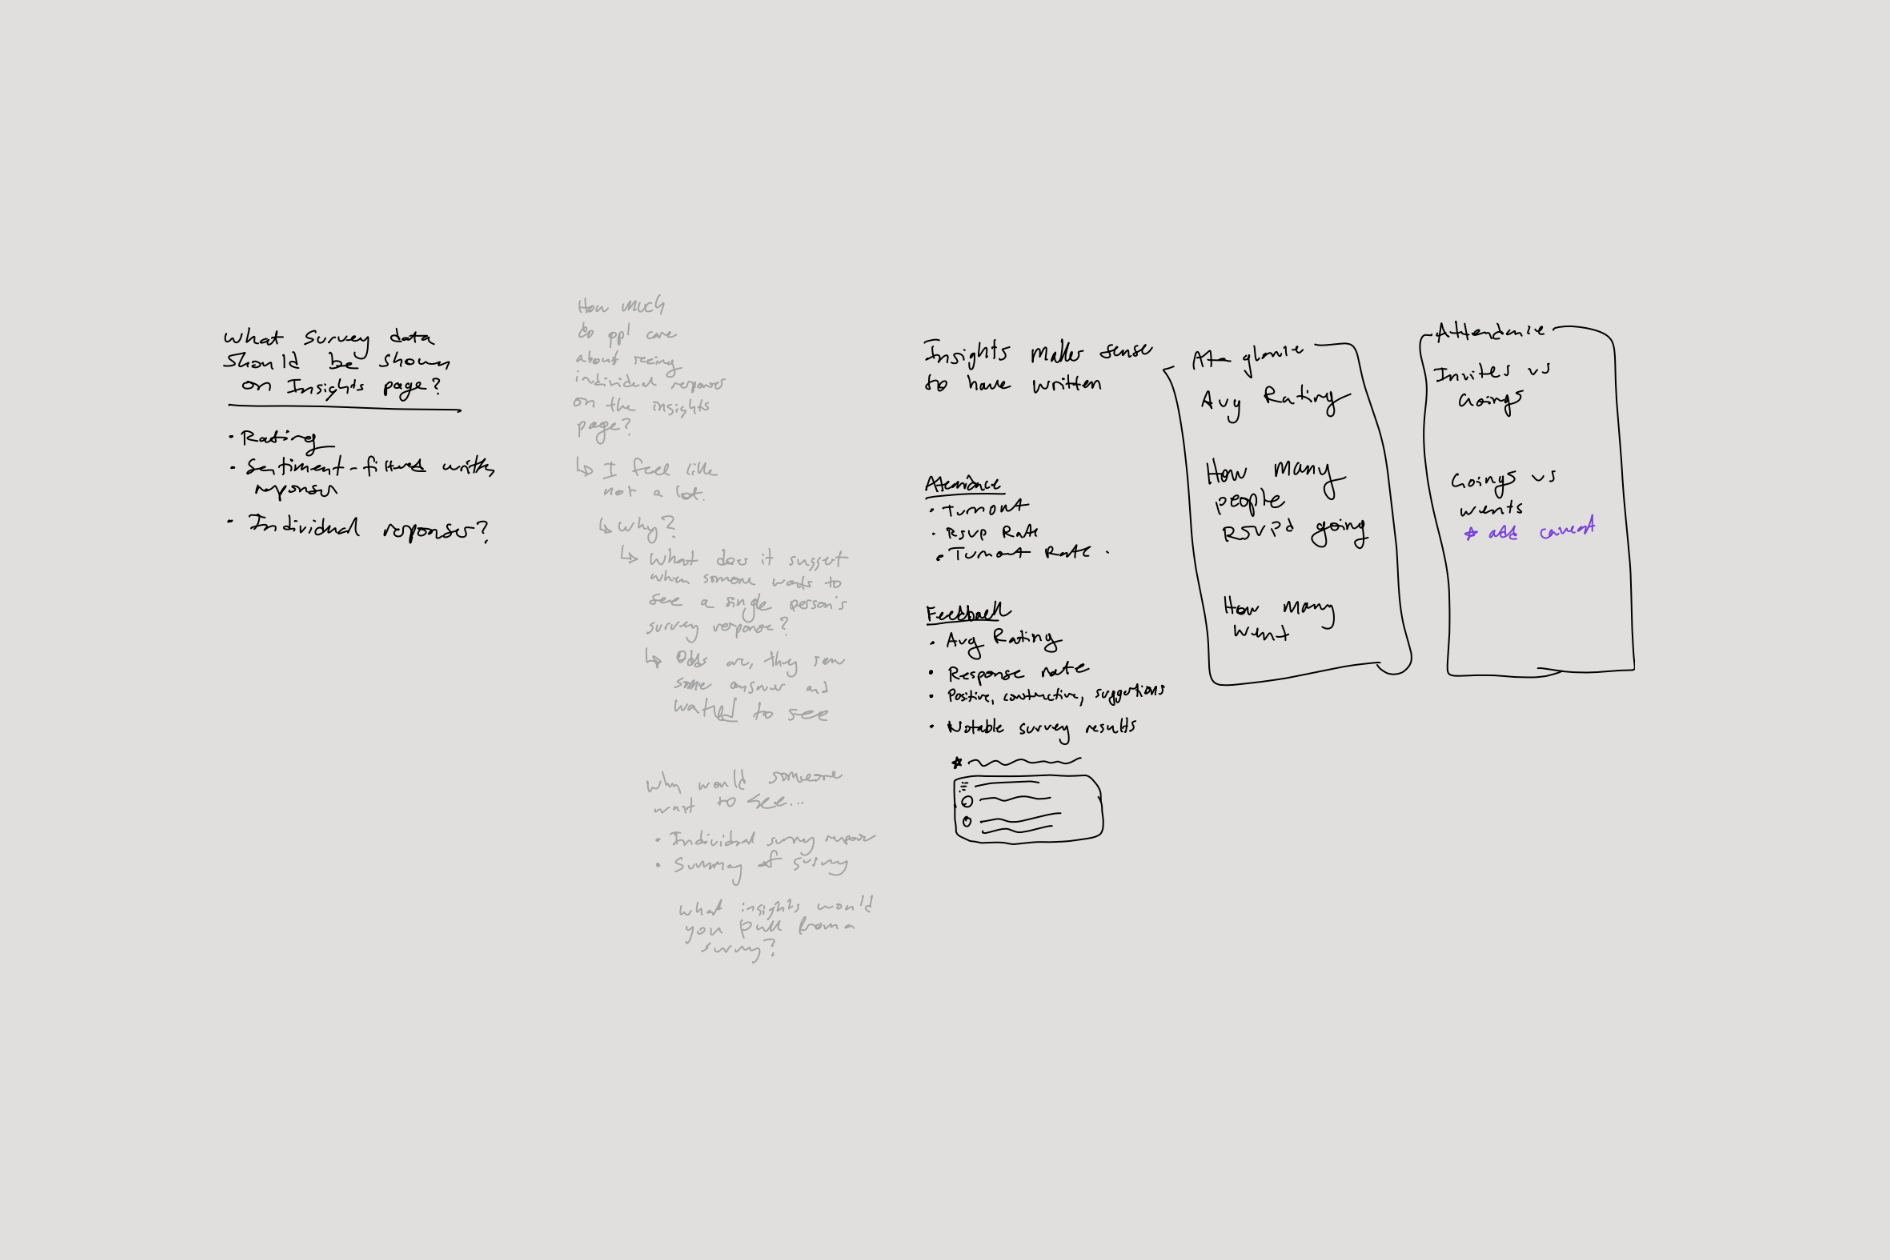 What Survey data
should be shown
on Insights page?
• Rating
• Sentiment-filtered written
responses
• Individual responses?
How much
do ppl care
about seeing
individual responses
on the insights
page?
↳ I feel like
not a lot.
↳ Why?
↳ What does it suggest
when someone wants to
see a single person's
survey response?
↳ Odds are, they saw
some answer and
wanted to see
Why would someone
want to see...
• Individual survey response
• Summary of survey
What insights would
you pull from a
survey?
Insights makes sense
to have written
Attendance
• Turnout
• RSVP Rate
• Turnout Rate
Feedback
• Avg Rating
• Response rate
• Positive, constructive, suggestions
• Notable survey results
At a glance
Avg Rating
How many
people
RSVPd going
How many
went
Attendance
Invites vs
Goings
Goings vs
wents
* add caveat